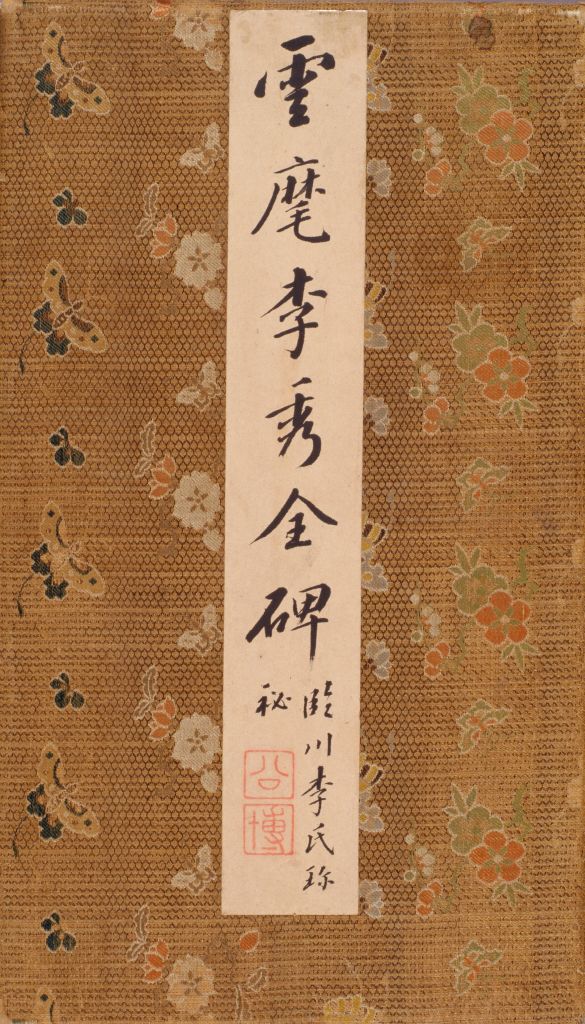 雲麾李秀全碑
臨川李氏珎
秘
公
博